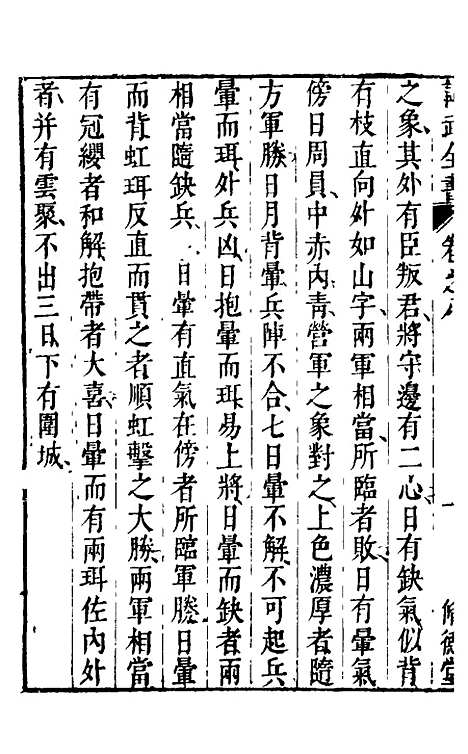 之象其外有臣叛君、將守邊有二心、日有缺氣似背
有枝直向外如山字、兩軍相當、所臨者敗、日有暈氣
傍日周員、中赤內青、營軍之象對之、上色濃厚者、隨
方軍勝、日月背暈、兵陣不合、七日暈不解、不可起兵、
暈而珥、外兵凶、日抱暈而珥、易上將、日暈而缺者、兩
相當隨缺兵、日暈有直氣在傍者、所臨軍勝、日暈
而背虹珥反直而貫之者、順虹擊之大勝、兩軍相當
有冠纓者和解、抱帶者大喜、日暈而有兩珥佐內外
者、并有雲聚、不出三日、下有圍城、